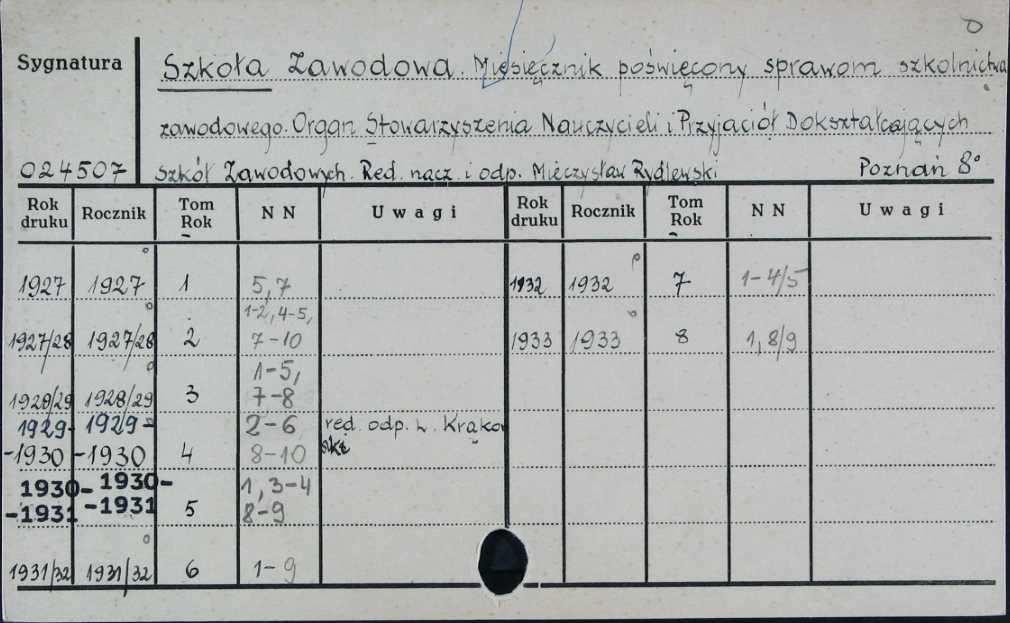 Sygnatura
Szkoła Zawodowa. Miesięcznik poświęcony sprawom szkolnictwa
zawodowego. Organ Stowarzyszenia Nauczycieli i Przyjaciół Dokształcających
024507 szkół Zawodowych. Red. nacz. i odp. Mieczysław Rydlewski Poznań 8°
Rok druku Rocznik Tom Rok NN Uwagi Rok druku Rocznik Tom Rok NN Uwagi
1927 1927 1 5,7 1932 1932 7 1-4/5
1927/28 1927/28 2 1-2, 4-5, 7-10 1933 1933 8 1, 8/9
1928/29 1928/29 3 1-5, 7-8
1929- 1929- 2-6 red. odp. L.
-1930 -1930 4 8-10
1930- 1930- 1, 3-4
-1931 -1931 5 8-9
1931/32 1931/32 6 1-9